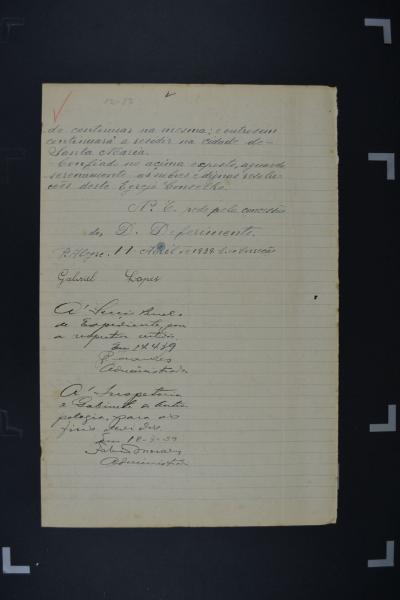 12-13
de continuar na mesma; e outrosem
continuará a residir na cidade de
Santa Maria.
Confiado no acima exposto, aguarda
serenamente as nobres e dignas resolu-
cões deste Egregio Conselho.
N. T. pede pela concessão
do D. Deferimento.
P. Alegre, 11 Abril de 1939
Gabriel Lopes
A' Secção
de Expediente, para
a
Em 12.4.39
Administrador
A' Inspetoria
e Gabinete de
pologia, para os
fins devidos
Em 18-9-39
Administrador